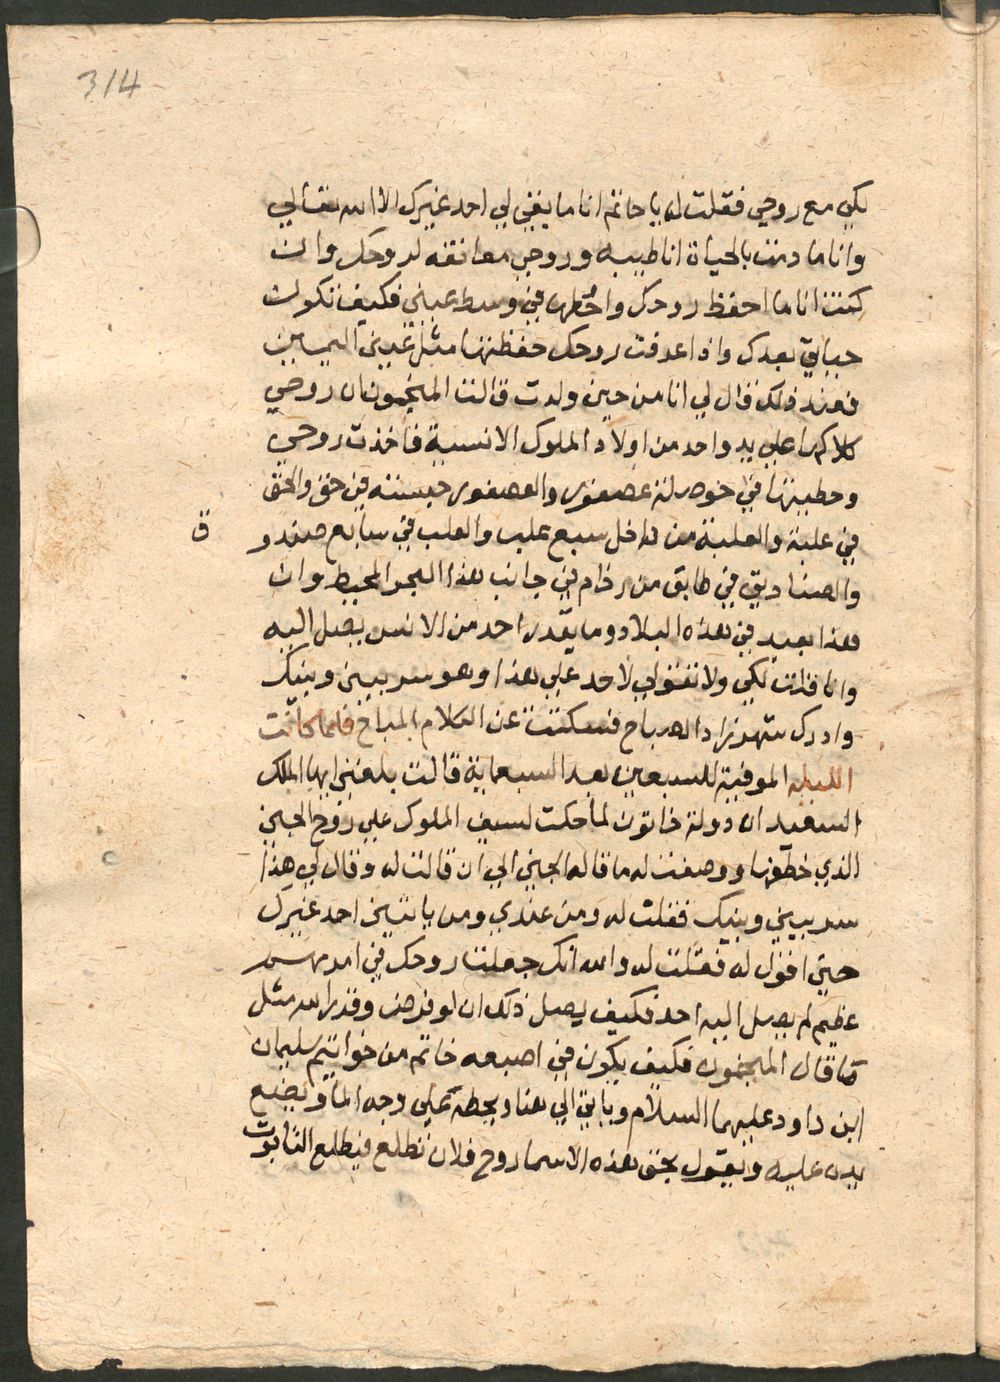 314
لكي مع روحي فقلت له يا حاتم انا ما يغني لي احد غيرك الا الله تعالي
وانا ما دمت بالحياة انا طيبه وروحي معانقه لروحك وان
كنت انا ما احفظ روحك واحطها في وسط عيني فكيف تكون
حياتي بعدك واذا عرفت روحك حفظتها مثل عيني اليمين
فعند ذلك قال لي انا من حين ولدت قالت المنجمون ان روحي
هلاكها علي يد واحد من اولاد الملوك الانسية فاخذت روحي
وحطيتها في حوصلة عصفور والعصفور حبسته في حق والحق
في علبة والعلبة من داخل سبع علب والعلب في سابع صندو
ق
والصناديق في طابق من رخام في جانب هذا البحر المحيط وان
هذا بعيد في هذه البلاد وما يقدر احد من الانس يصل اليه
وانا قلت لكي ولا تقولي لاحد علي هذا وهو سر بيني وبينك
وادرك شهرزاد الصباح فسكتت عن الكلام المباح فلما كانت
الليله الموفية للسبعين بعد السبعماية قالت بلغني ايها الملك
السعيد ان دولة خاتون لما حكت لسيف الملوك علي روح الجني
الذي خطفها ووصفت له ما قاله الجني الي ان قالت له وقال لي هذا
سر بيني وبينك فقلت له ومن عندي ومن ياتيني احد غيرك
حتي اقول له فقلت له والله انك جعلت روحك في امر حصين
عظيم لم يصل اليه احد فكيف يصل ذلك ان لو فرض وقدر الله مثل
ما قال المنجمون فكيف يكون في اصبعه خاتم من خواتيم سليمان
ابن داود عليهما السلام وياتي الي هنا ويحطه علي وجه الما ويضع
يده عليه ويقول بحق هذه الاسما روح فلان تطلع فيطلع التابوت